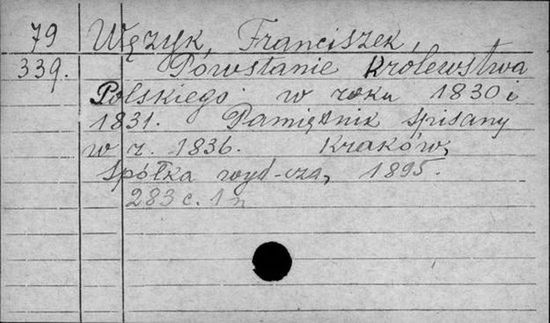 79 Wężyk, Franciszek,
339. Powstanie Królewstwa
Polskiego w roku 1830 i
1831. Pamiętnik spisany
w r. 1836. Kraków,
spółka wyd-cza, 1895.
283 c. 1 n